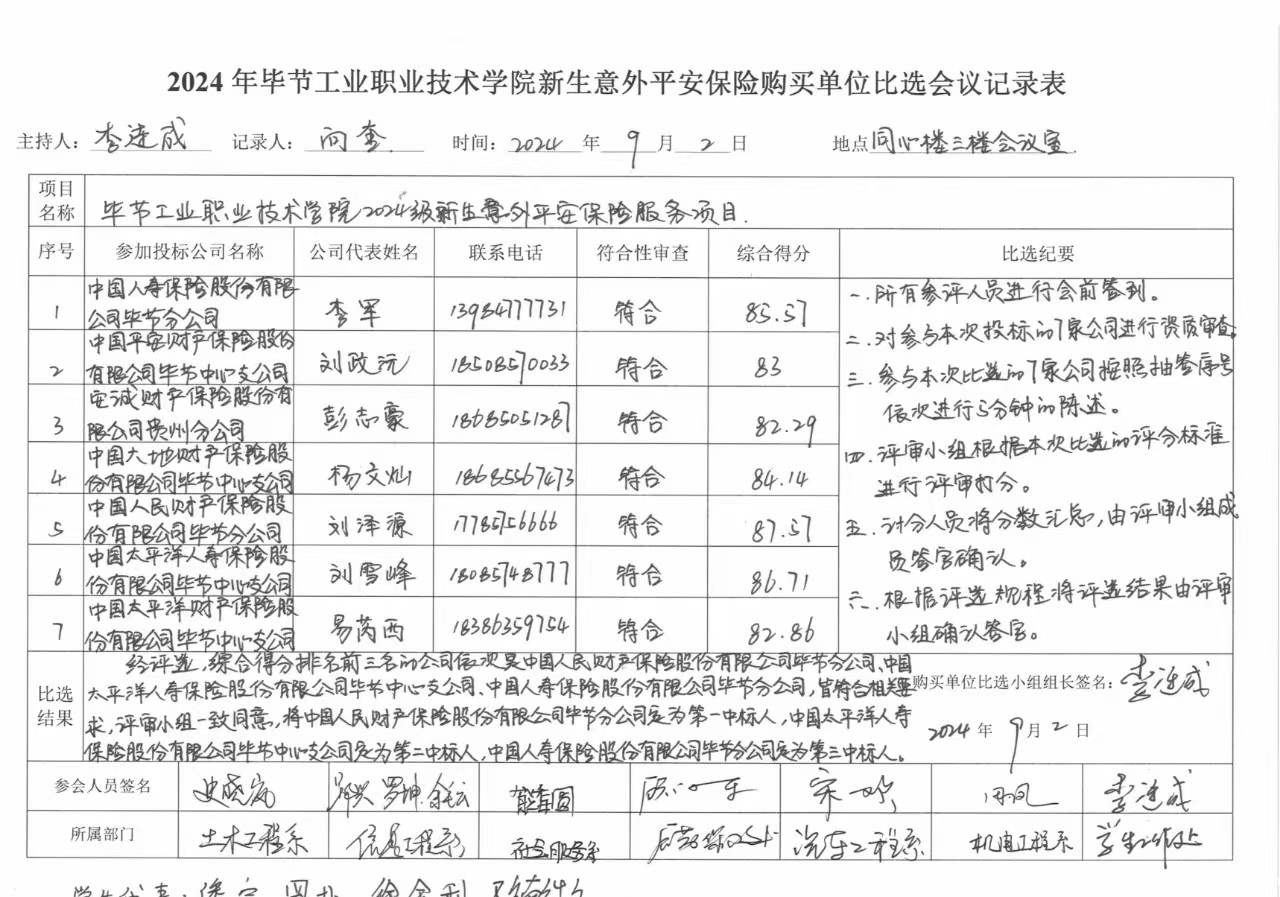 2024年毕节工业职业技术学院新生意外平安保险购买单位比选会议记录表
主持人：李连成 记录人：向奎 时间：2024年9月2日 地点 同心楼三楼会议室.
项目名称 毕节工业职业技术学院2024级新生意外平安保险服务项目.
序号 参加投标公司名称 公司代表姓名 联系电话 符合性审查 综合得分 比选纪要
1 中国人寿保险股份有限公司毕节分公司 李军 13984777731 符合 85.57
2 中国平安财产保险股份有限公司毕节中心支公司 刘政沅 18508570033 符合 83
3 安诚财产保险股份有限公司贵州分公司 彭志豪 18685051287 符合 82.29
4 中国大地财产保险股份有限公司毕节中心支公司 杨文灿 18685567473 符合 84.14
5 中国人民财产保险股份有限公司毕节分公司 刘泽源 17785756666 符合 87.57
6 中国太平洋人寿保险股份有限公司毕节中心支公司 刘雪峰 18085748777 符合 86.71
7 中国太平洋财产保险股份有限公司毕节中心支公司 易芮西 18386359754 符合 82.86
一.所有参评人员进行会前签到。
二.对参与本次投标的7家公司进行资质审查.
三.参与本次比选的7家公司按照抽签序号
依次进行5分钟的陈述。
四.评审小组根据本次比选的评分标准
进行评审打分。
五.计分人员将分数汇总，由评审小组成
员签字确认。
六.根据评选规程将评选结果由评审
小组确认签字。
比选结果
经评选，综合得分排名前三名的公司依次是中国人民财产保险股份有限公司毕节分公司、中国
太平洋人寿保险股份有限公司毕节中心支公司、中国人寿保险股份有限公司毕节分公司，皆符合相关要
求，评审小组一致同意，将中国人民财产保险股份有限公司毕节分公司定为第一中标人，中国太平洋人寿
保险股份有限公司毕节中心支公司定为第二中标人，中国人寿保险股份有限公司毕节分公司定为第三中标人。
购买单位比选小组组长签名：李连成
2024年9月2日
参会人员签名 史晓岚 罗坤 李连成
所属部门 土木工程系 信息工程系 社会服务系 汽车工程系 机电工程系 学生工作处
学生代表：